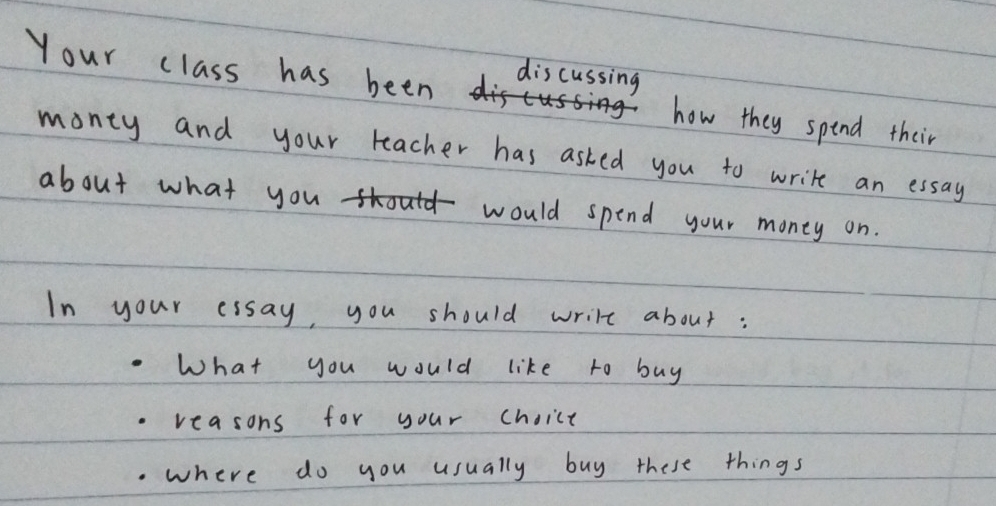 Your class has been discussing how they spend their
money and your teacher has asked you to write an essay
about what you should would spend your money on.
In your essay, you should write about :
• What you would like to buy
• reasons for your choice
• where do you usually buy these things